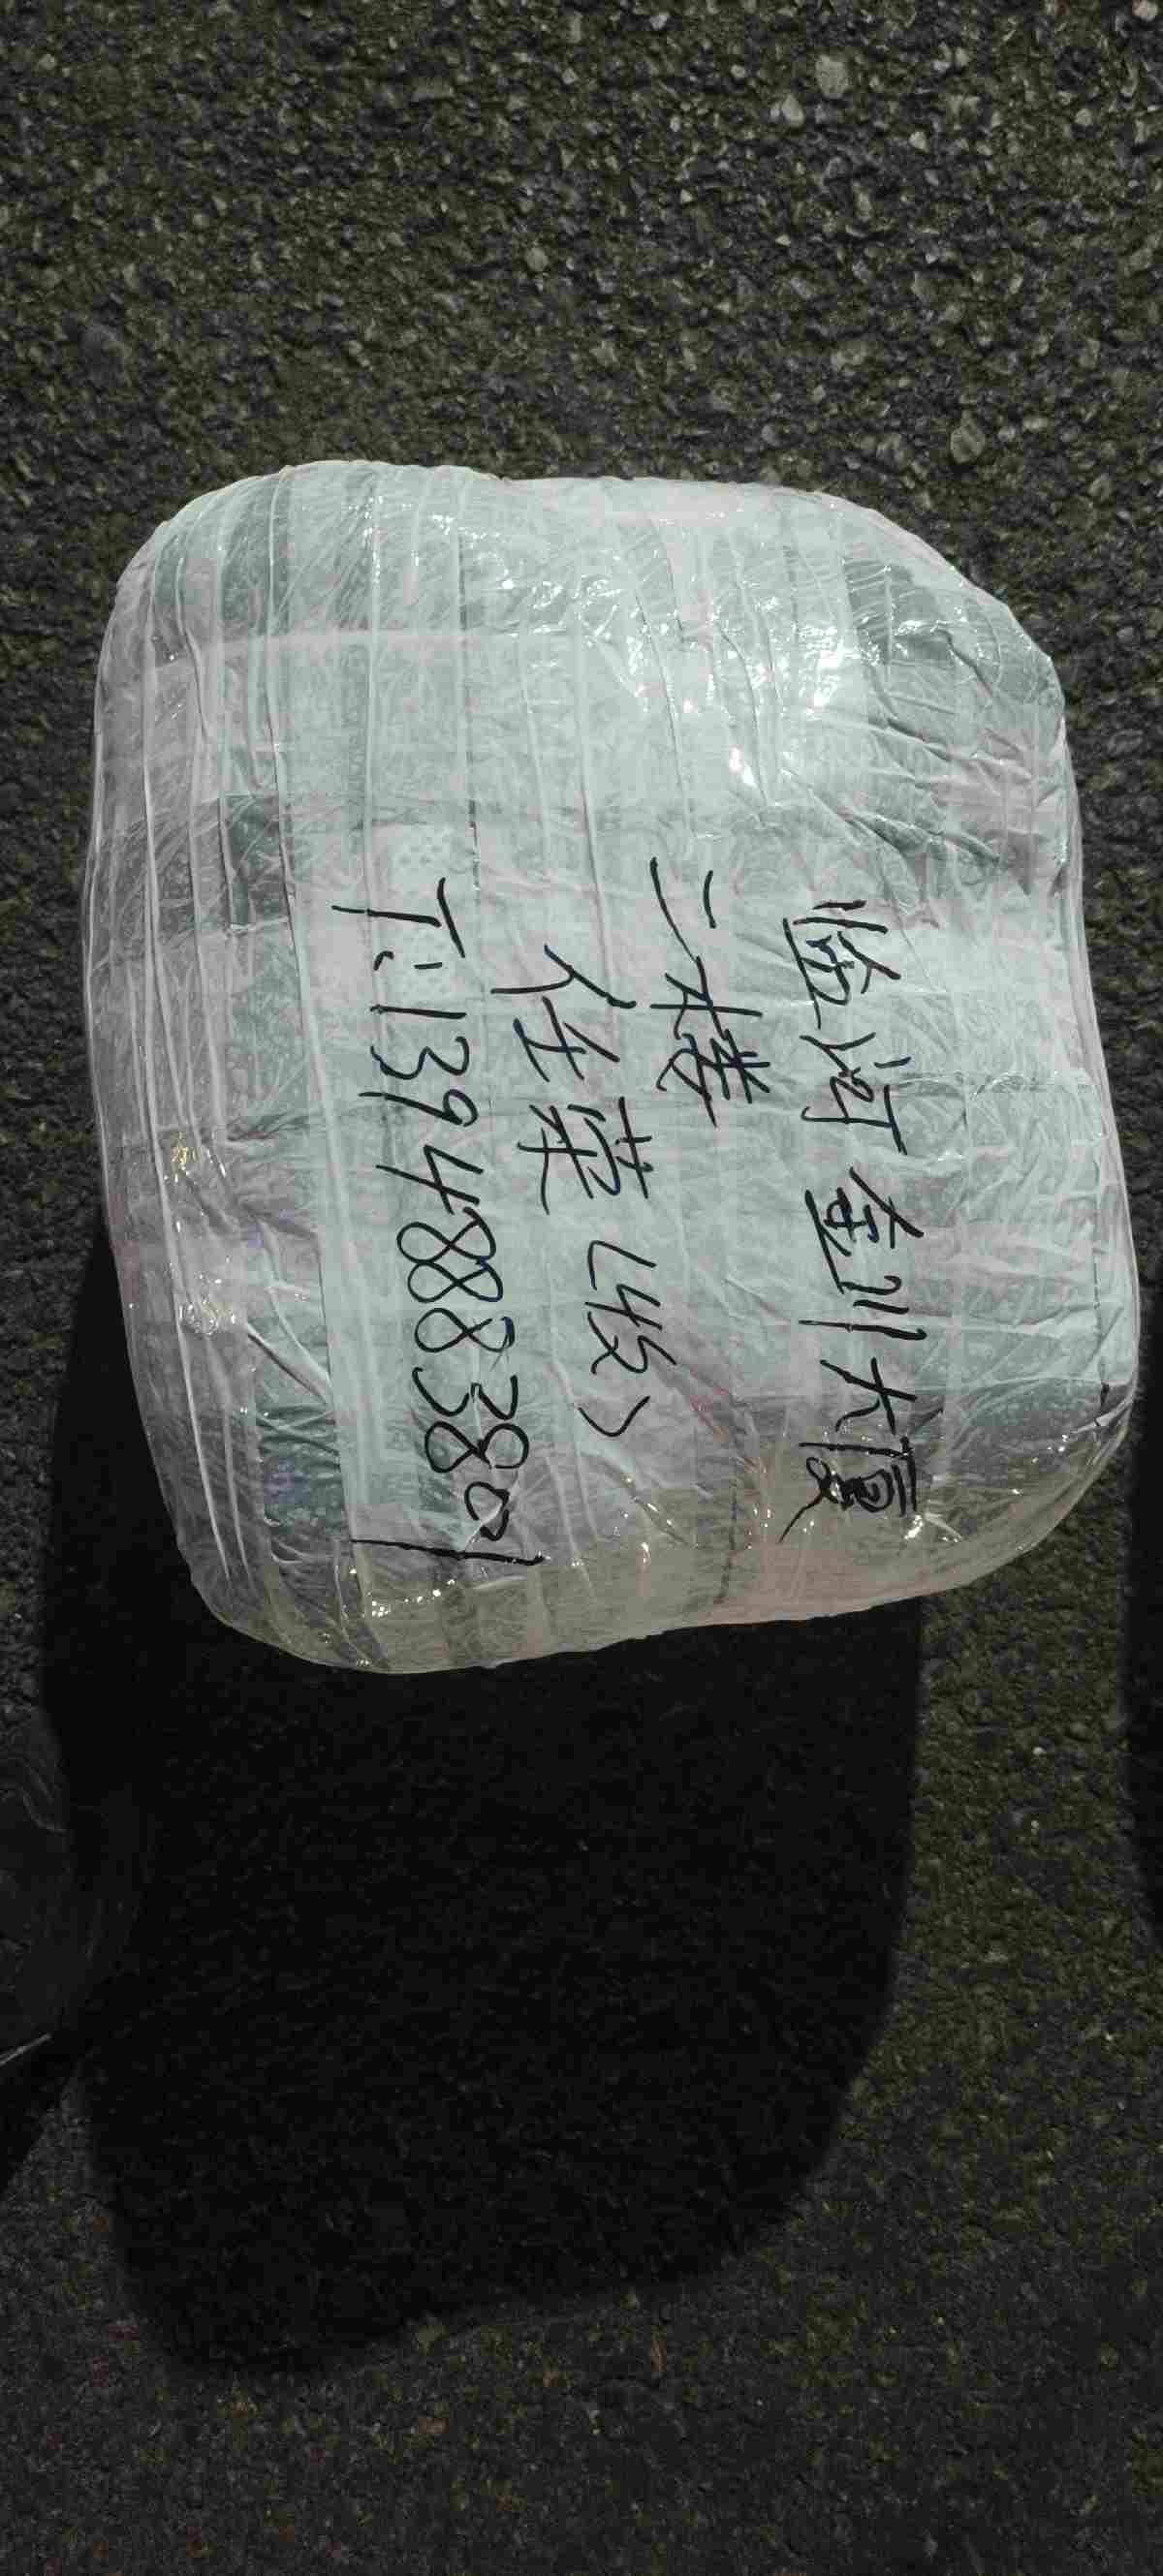 临河金川大厦
二楼
任荣(收)
T:13948883801